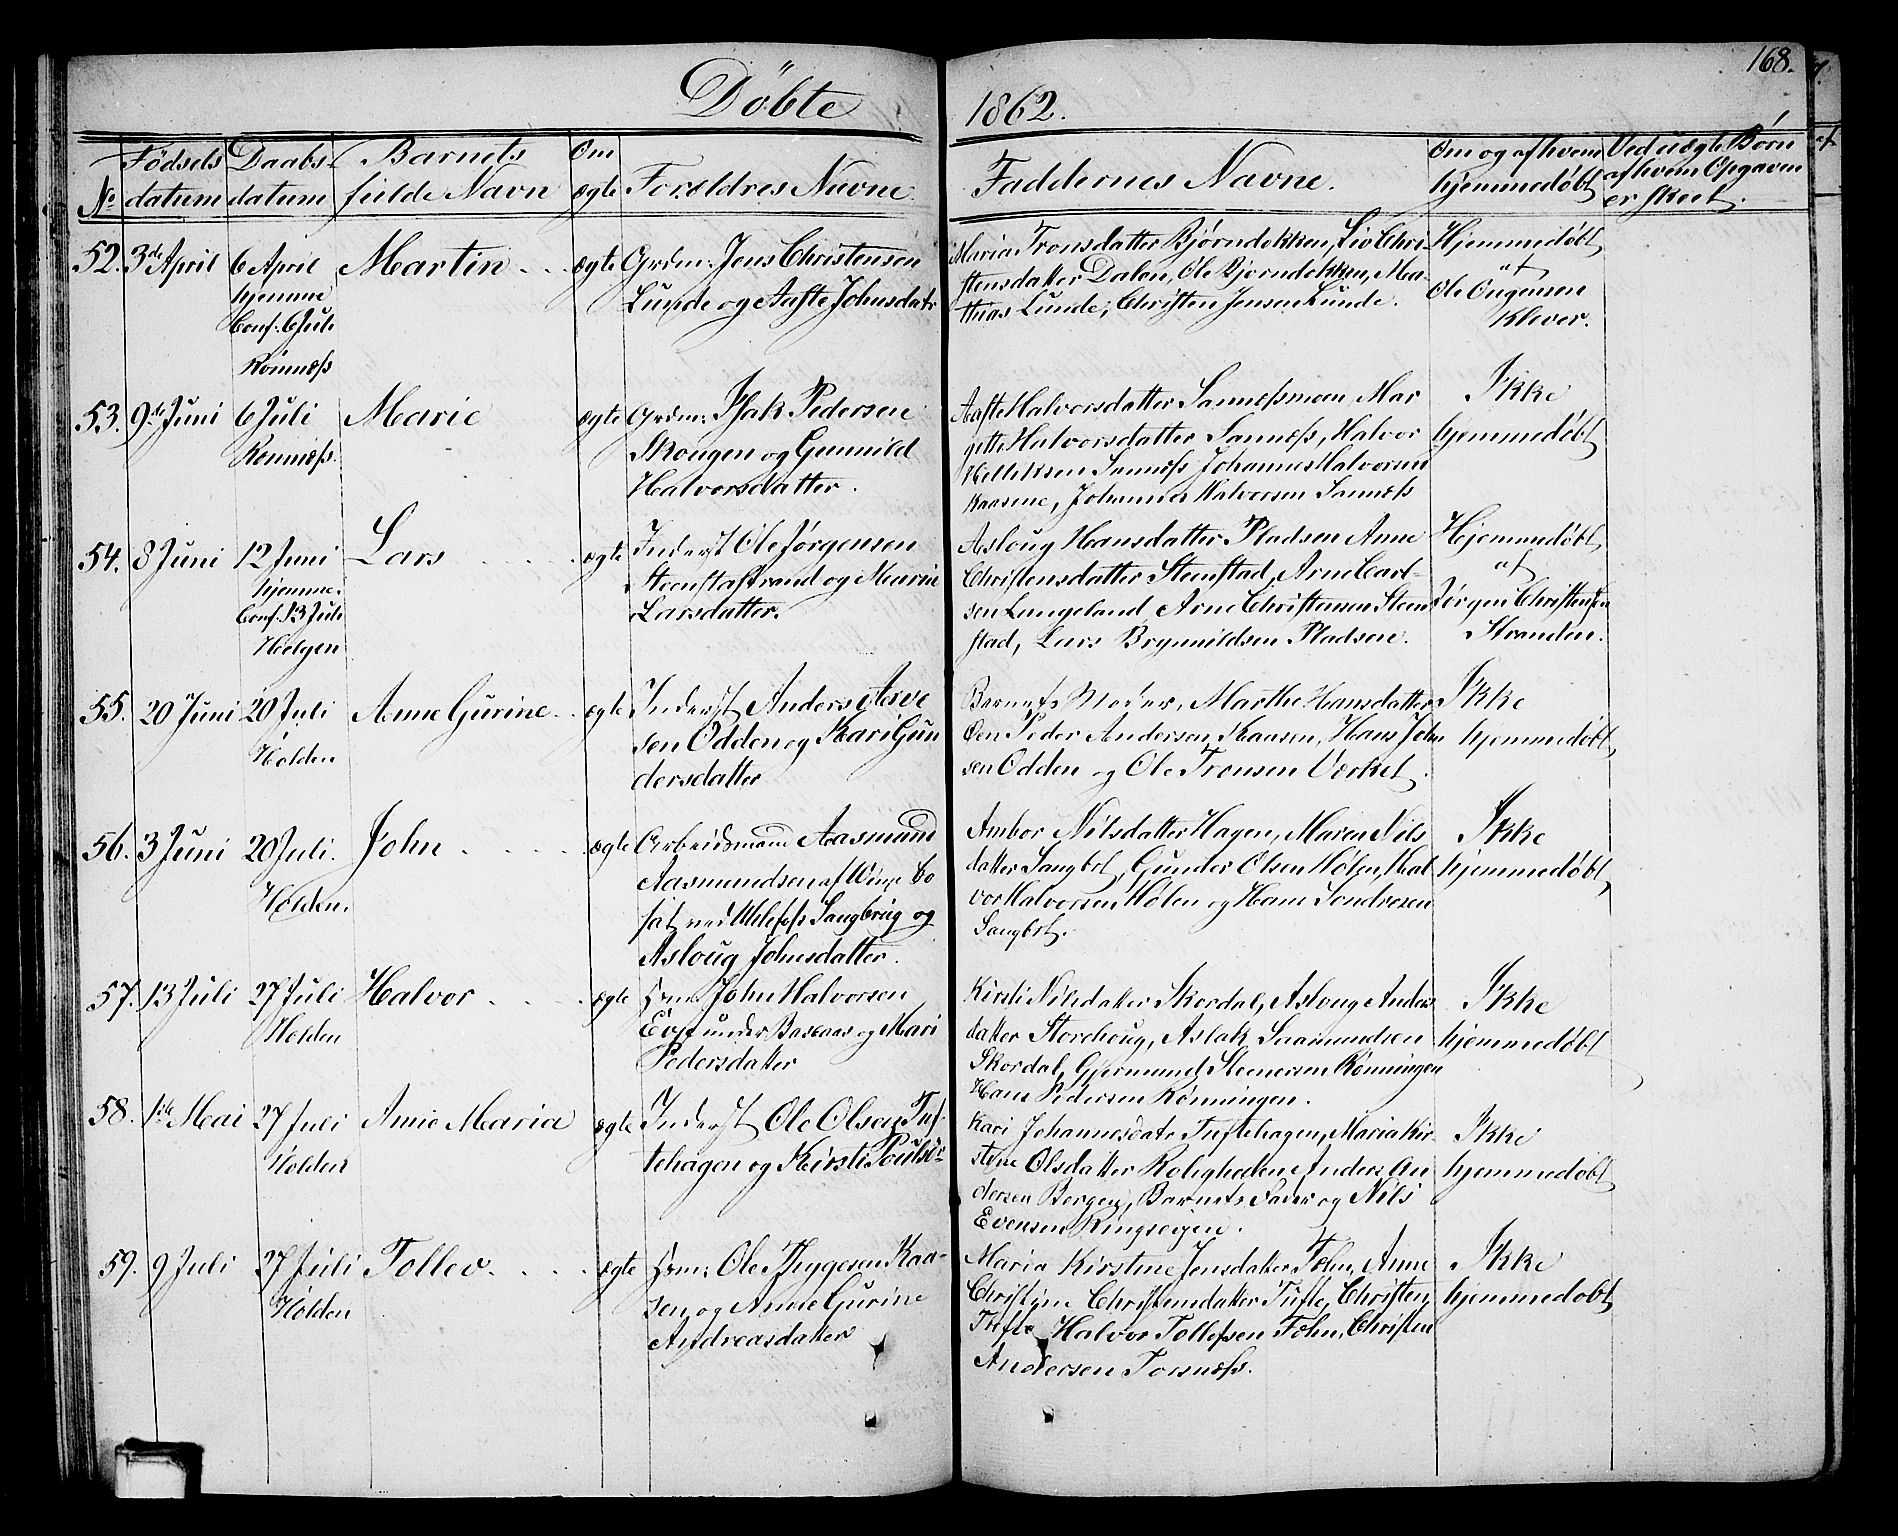 168.
Döbte 1862.
No
Födsels
datum
Daabs-
datum
Barnets
fulde Navn
Om
ægte
Forældres Navne.
Faddernes Navne.
Om og af hvem
hjemmedøbt
Ved uægte Børn
af hvem Opgaven
er skeet.
52. 3die April
6 April
hjemme
Conf: 6 Juli
Romnæss
Martin
ægte
Grdm: Jens Christensen
Lunde og Aaste Johnsdatr
Maria Tronsdatter Bjørndokken, Liv Chri-
stensdatter Dalen, Ole Bjorndokken, Ma-
thias Lunde, Christen Jensen Lunde.
Hjemmedøbt
af
Ole
Klever.
53. 9de Juni
6 Juli
Romnæss.
Marie
ægte
Grdm: Isak Pedersen
Skougen og Gunnild
Halvorsdatter.
Aaste Halvorsdatter Sannessmoen Mar
gitte Halvorsdatter Sannæss, Halvor
Sannæss Johannes Halvorsen
Kaasene, Johannes Halvorsen Sannæss
Ikke
hjemmedøbt
54. 8 Juni
12 Juni
hjemme.
Conf. 13 Juli
Helgen
Lars
ægte
Inderst Ole Jørgensen
Steenstastrand og Maria
Larsdatter.
Asloug Hansdatter Pladsen Anne
Christensdatter Stenstad, Arne Carl-
sen Lungeland, Arne Christensen Steen
stad, Lars Brynnildsen Pladsene.
Hjemmedøbt
af
Jørgen Christensen
Stranden.
55. 20 Juni
20 Juli
Holden
Anne Gurine
ægte
Inderst Anders Asve
sen Odden og Kari Gun
dersdatter
Barnets Moder, Marthe Hansdatter
Øen Peder Andersen, Kaasen, Hans John
sen Odden og Ole Tronsen Værket.
Ikke
hjemmedøbt
56. 3 Juni
20 Juli.
Holden.
John
ægte
Arbeidsmand Aasmund
Aasmundsen af Winje bo
sat ved Ulefoss Saugbrug og
Asloug Johnsdatter.
Ambor Nilsdatter Hagen, Maren Nils
datter Saugbrt, Gunder Olsen Holen, Hal
vor Halvorsen Holen og Hans Sondresen
Saugbrt.
Ikke
hjemmedøbt
57. 13 Juli
27 Juli
Holden
Halvor
ægte
Hsm: John Halvorsen
under og Mari
Pedersdatter
Kirsti Nilsdatter Skordal, Asloug Anders
datter Storehoug, Aslak Saamundsen
Skordal, Gjermund Steenersen Rönningen
Hans Pedersen Rönningen.
Ikke
hjemmedøbt
58. 1ste Mai
27 Juli
Holden
Anne Maria
ægte
Inderst Ole Olsen Tuf-
tehagen og Kirsti Poulsdr
Kari Johannesdatr Tuftehagen, Maria Kir-
stine Olsdatter Roligheden Anders An
dersen Bergen, Barnets Fader og Nils
Evensen Ringseigen.
Ikke
hjemmedøbt
59. 9 Juli
27 Juli
Holden
Tollev
ægte
Hsm: Ole Thygesen Kaa-
sen og Anne Gurine
Andreasdatter
Maria Kirstine Jensdatter Fæhn, Anne
Christine Christensdatter Tufte, Christen
Tufte Halvor Tollefsen Fæhn, Christen
Andersen Torsnæss.
Ikke
hjemmedøbt